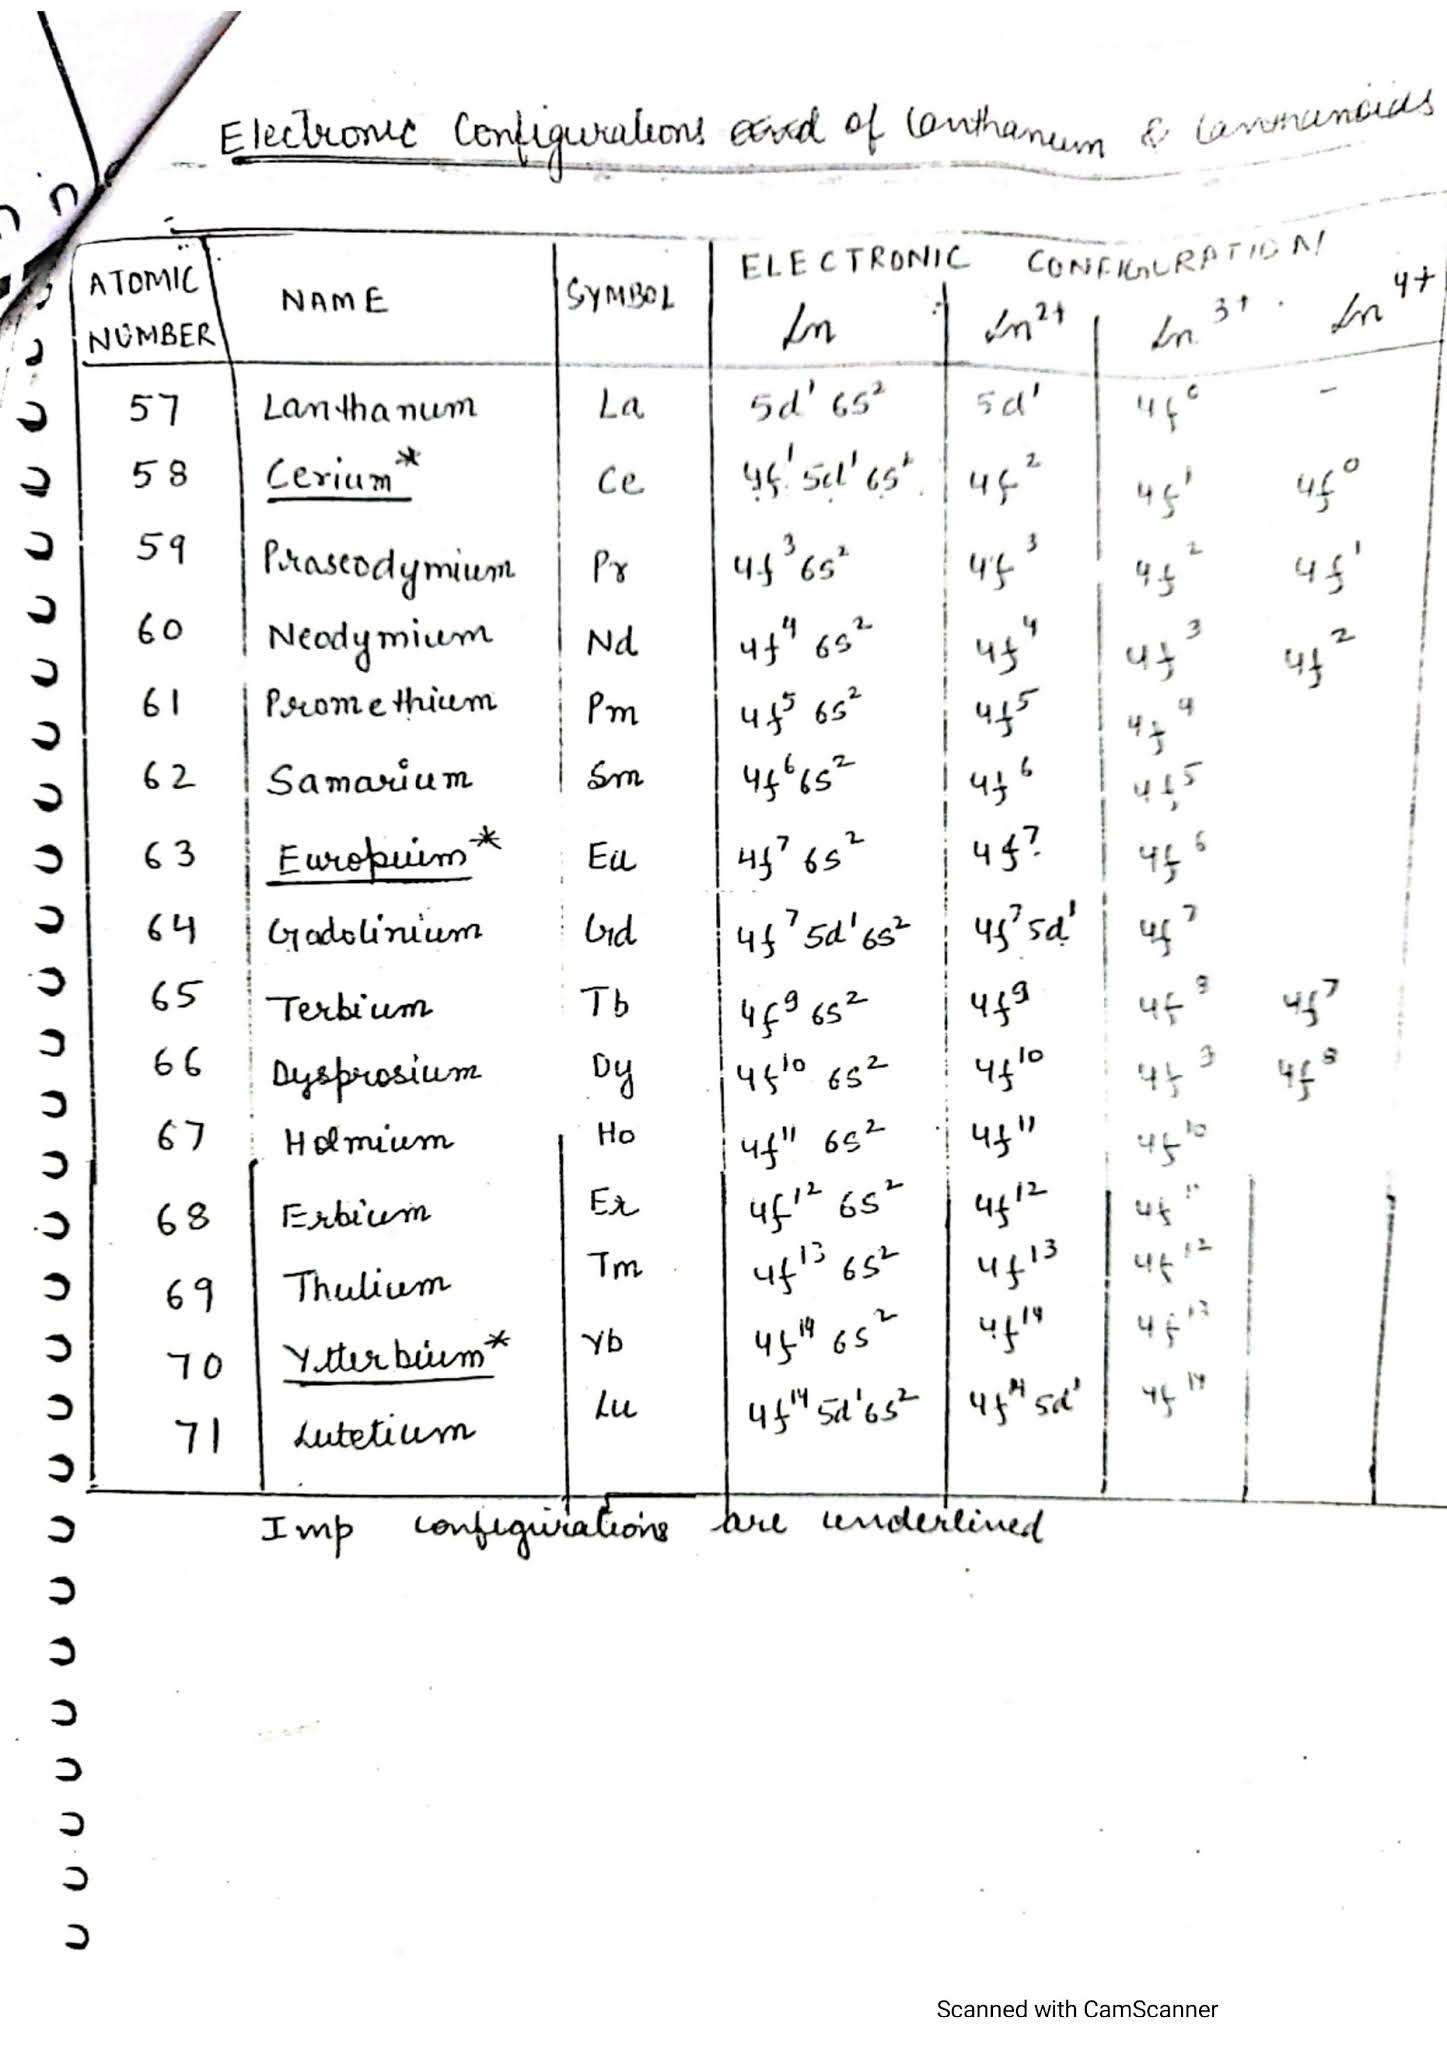 Electronic Configurations of Lanthanum & Lanthanoids
ATOMIC NUMBER NAME SYMBOL ELECTRONIC CONFIGURATION
Ln Ln²⁺ Ln³⁺ Ln⁴⁺
57 Lanthanum La 5d¹ 6s² 5d¹ 4f⁰ -
58 Cerium* Ce 4f¹ 5d¹ 6s² 4f² 4f¹ 4f⁰
59 Praseodymium Pr 4f³ 6s² 4f³ 4f² 4f¹
60 Neodymium Nd 4f⁴ 6s² 4f⁴ 4f³ 4f²
61 Promethium Pm 4f⁵ 6s² 4f⁵ 4f⁴
62 Samarium Sm 4f⁶ 6s² 4f⁶ 4f⁵
63 Europium* Eu 4f⁷ 6s² 4f⁷ 4f⁶
64 Gadolinium Gd 4f⁷ 5d¹ 6s² 4f⁷ 5d¹ 4f⁷
65 Terbium Tb 4f⁹ 6s² 4f⁹ 4f⁸ 4f⁷
66 Dysprosium Dy 4f¹⁰ 6s² 4f¹⁰ 4f⁹ 4f⁸
67 Holmium Ho 4f¹¹ 6s² 4f¹¹ 4f¹⁰
68 Erbium Er 4f¹² 6s² 4f¹² 4f¹¹
69 Thulium Tm 4f¹³ 6s² 4f¹³ 4f¹²
70 Ytterbium* Yb 4f¹⁴ 6s² 4f¹⁴ 4f¹³
71 Lutetium Lu 4f¹⁴ 5d¹ 6s² 4f¹⁴ 5d¹ 4f¹⁴
Imp configurations are underlined
Scanned with CamScanner